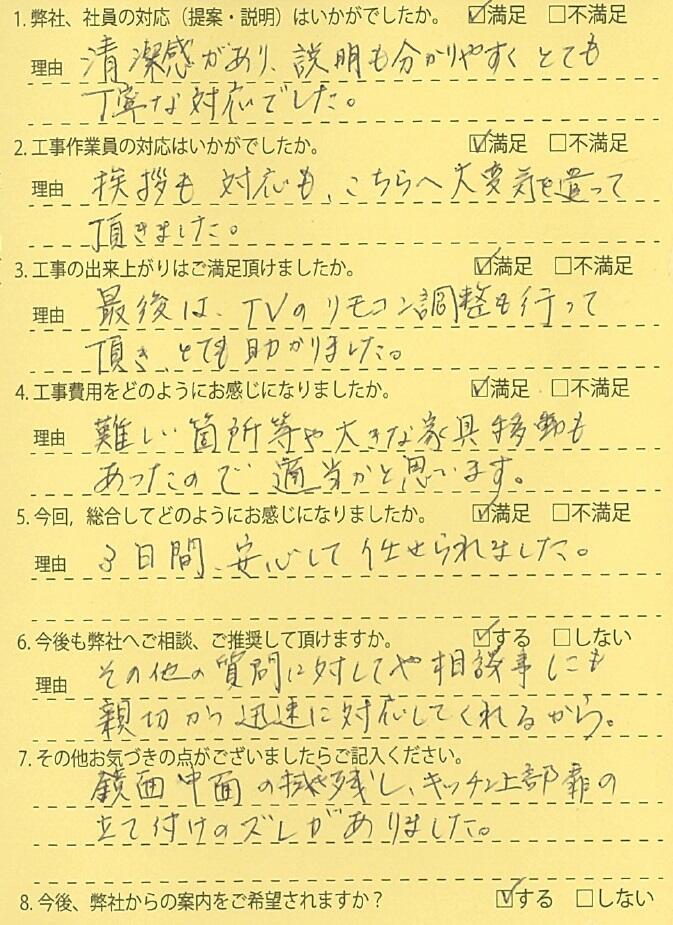 1. 弊社、社員の対応（提案・説明）はいかがでしたか。 ☑満足 □不満足
理由 清潔感があり、説明も分かりやすくとても
丁寧な対応でした。
2. 工事作業員の対応はいかがでしたか。 ☑満足 □不満足
理由 挨拶も対応も、こちらへ大変気を遣って
頂きました。
3. 工事の出来上がりはご満足頂けましたか。 ☑満足 □不満足
理由 最後は、TVのリモコン調整も行って
頂き、とても助かりました。
4. 工事費用をどのようにお感じになりましたか。 ☑満足 □不満足
理由 難しい箇所等や大きな家具移動も
あったので適当かと思います。
5. 今回，総合してどのようにお感じになりましたか。 ☑満足 □不満足
理由 3日間、安心して任せられました。
6. 今後も弊社へご相談、ご推奨して頂けますか。 ☑する □しない
理由 その他の質問に対してや相談事にも
親切かつ迅速に対応してくれるから。
7. その他お気づきの点がございましたらご記入ください。
鏡面中面の拭き残し、キッチン上部扉の
立て付けのズレがありました。
8. 今後、弊社からの案内をご希望されますか？ ☑する □しない